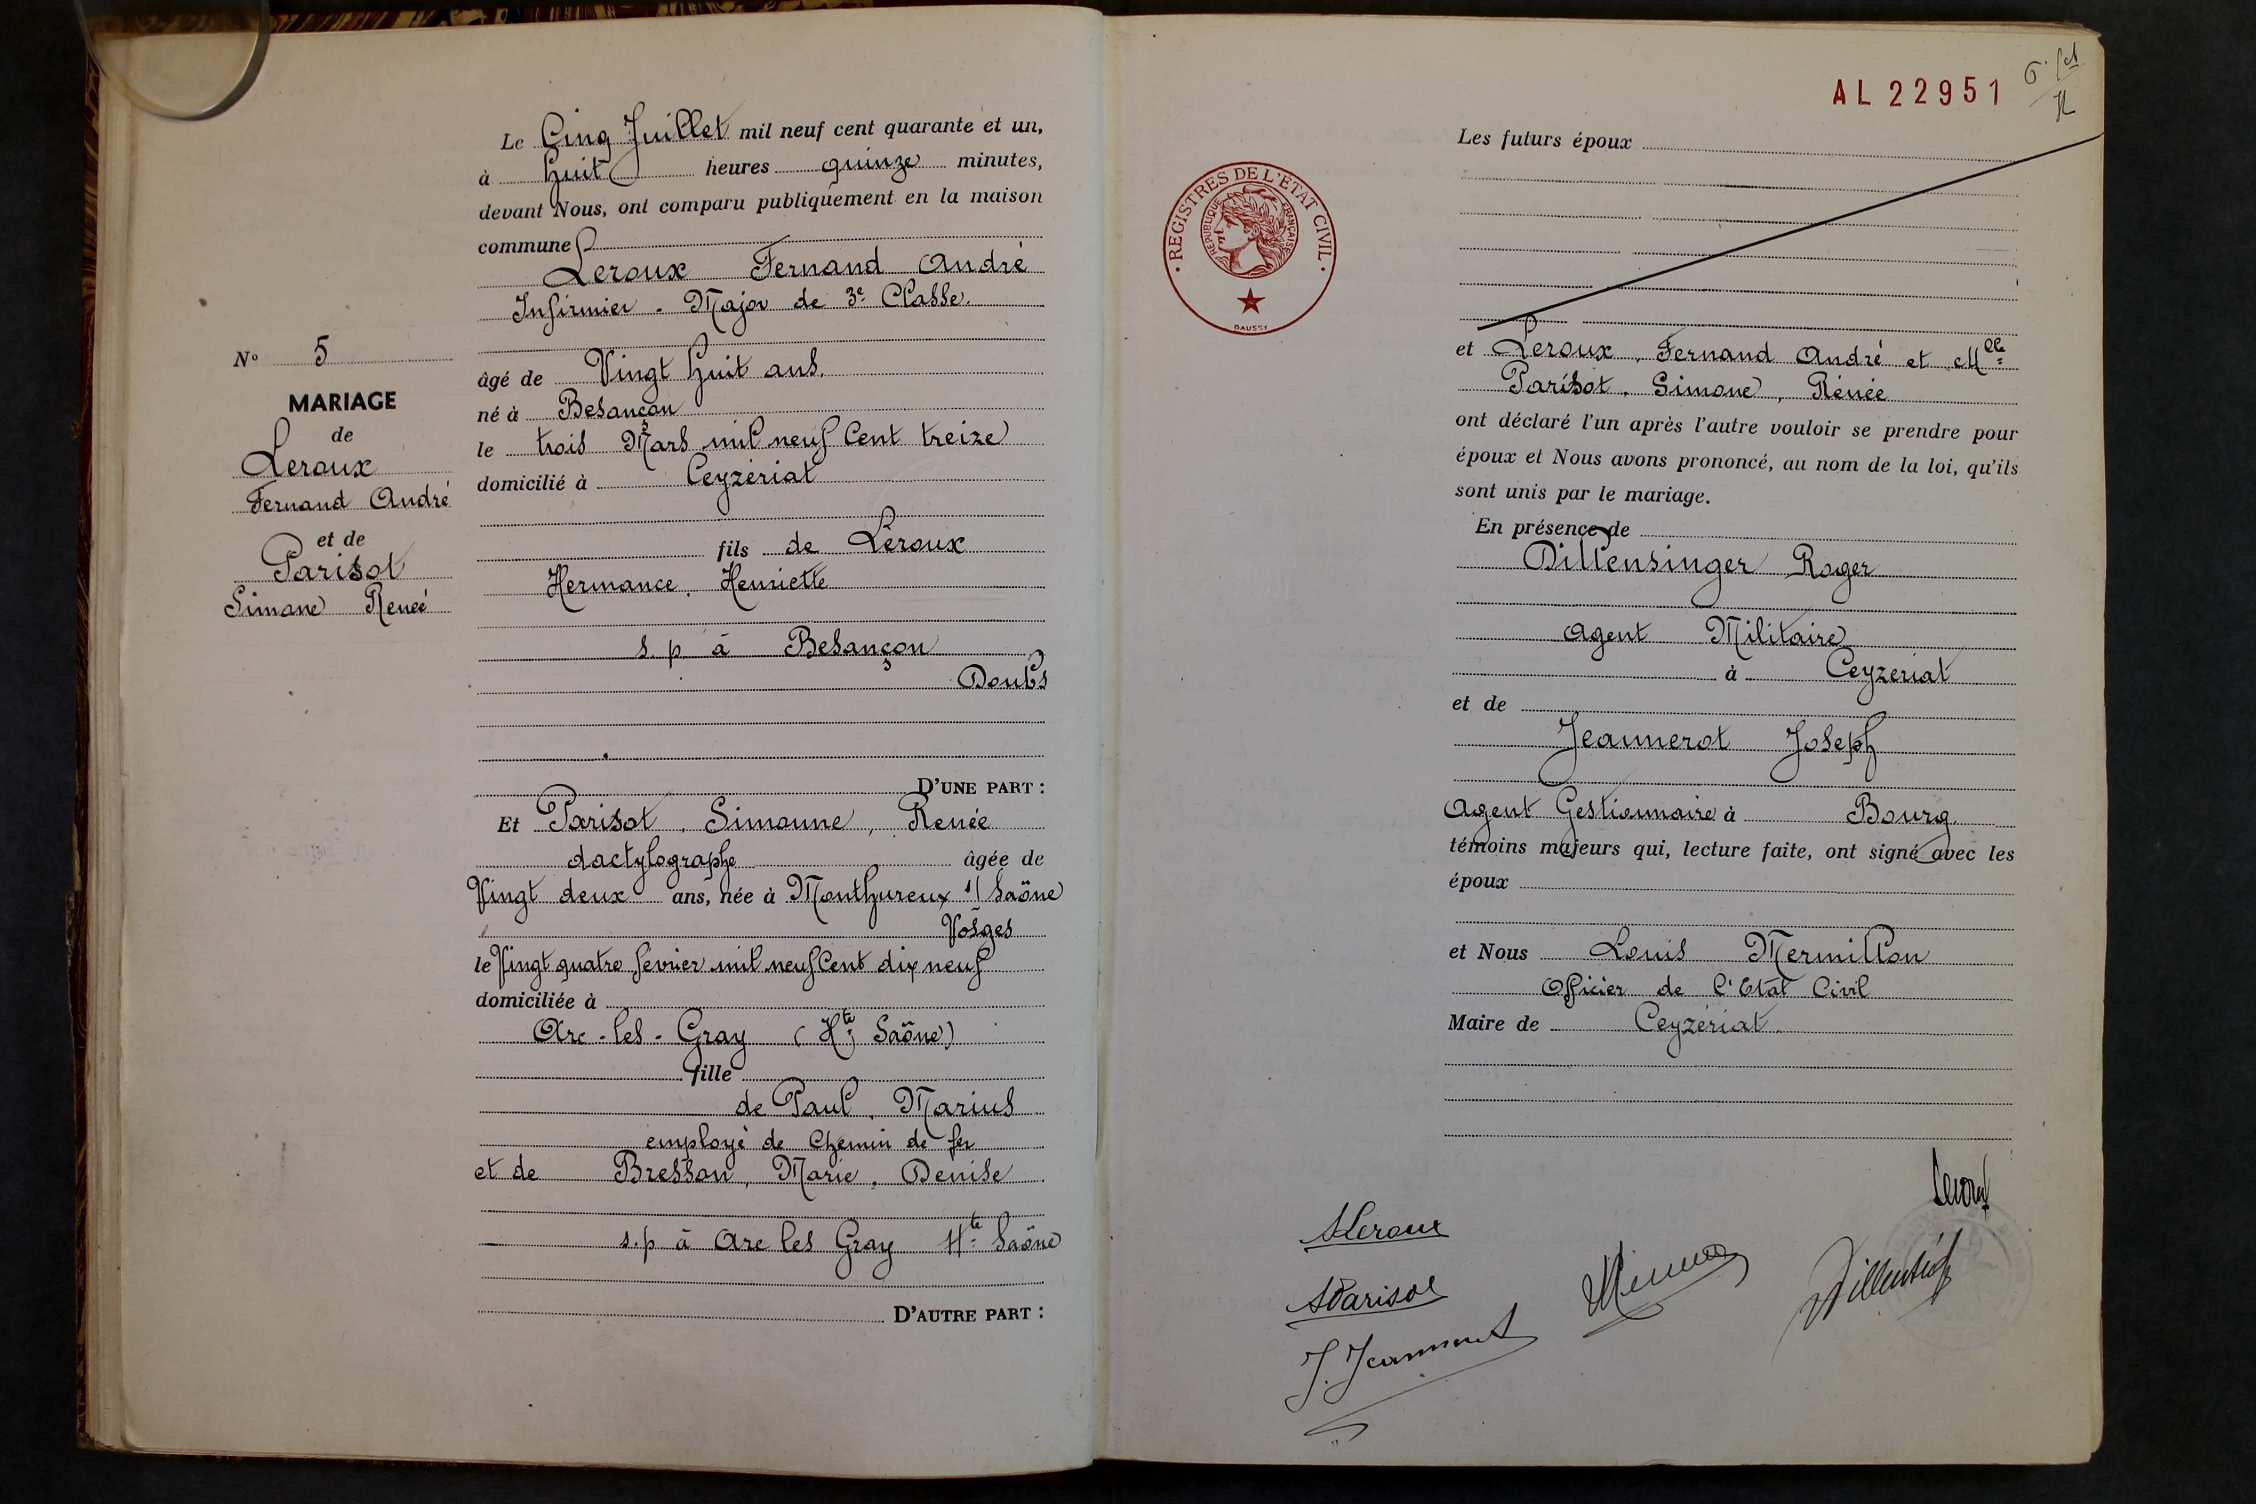 Le Cinq Juillet mil neuf cent quarante et un,
à huit heures quinze minutes,
devant Nous, ont comparu publiquement en la maison
commune
Leroux Fernand André
Infirmier - Major de 3e Classe.
âgé de Vingt huit ans.
né à Besançon
le trois Mars mil neuf Cent treize
domicilié à Ceyzériat
fils de Leroux
Hermance, Henriette
s. p. à Besançon
Doubs
D'UNE PART :
Et Parisot, Simonne, Renée
dactylographe âgée de
Vingt deux ans, née à Monthureux s/ Saône
Vosges
le Vingt quatre fevrier mil neuf Cent dix neuf
domiciliée à
Arc-les-Gray (Hte Saône)
fille
de Paul, Marius
employé de Chemin de fer
et de Bresson, Marie, Denise
s.p à Arc les Gray Hte Saône
D'AUTRE PART :
N° 5
MARIAGE
de
Leroux
Fernand André
et de
Parisot
Simone Renée
AL 22951
REGISTRES DE L'ÉTAT CIVIL
RÉPUBLIQUE FRANÇAISE
DAUSSY
Les futurs époux
et Leroux, Fernand André et Mlle
Parisot, Simone, Rénée
ont déclaré l'un après l'autre vouloir se prendre pour
époux et Nous avons prononcé, au nom de la loi, qu'ils
sont unis par le mariage.
En présence de
Dillensinger Roger
Agent Militaire
à Ceyzeriat
et de
Jeannerot Joseph
Agent Gestionnaire à Bourg
témoins majeurs qui, lecture faite, ont signé avec les
époux
et Nous Louis Mermillon
Officier de l'Etat Civil
Maire de Ceyzériat
Leroux
SLeroux
SParisot
J. Jeannerot